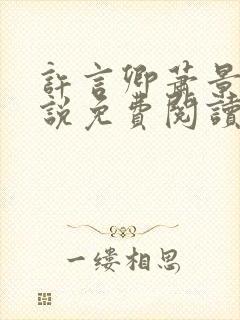 許言卿蕭景
說免費閱讀
一缕相思